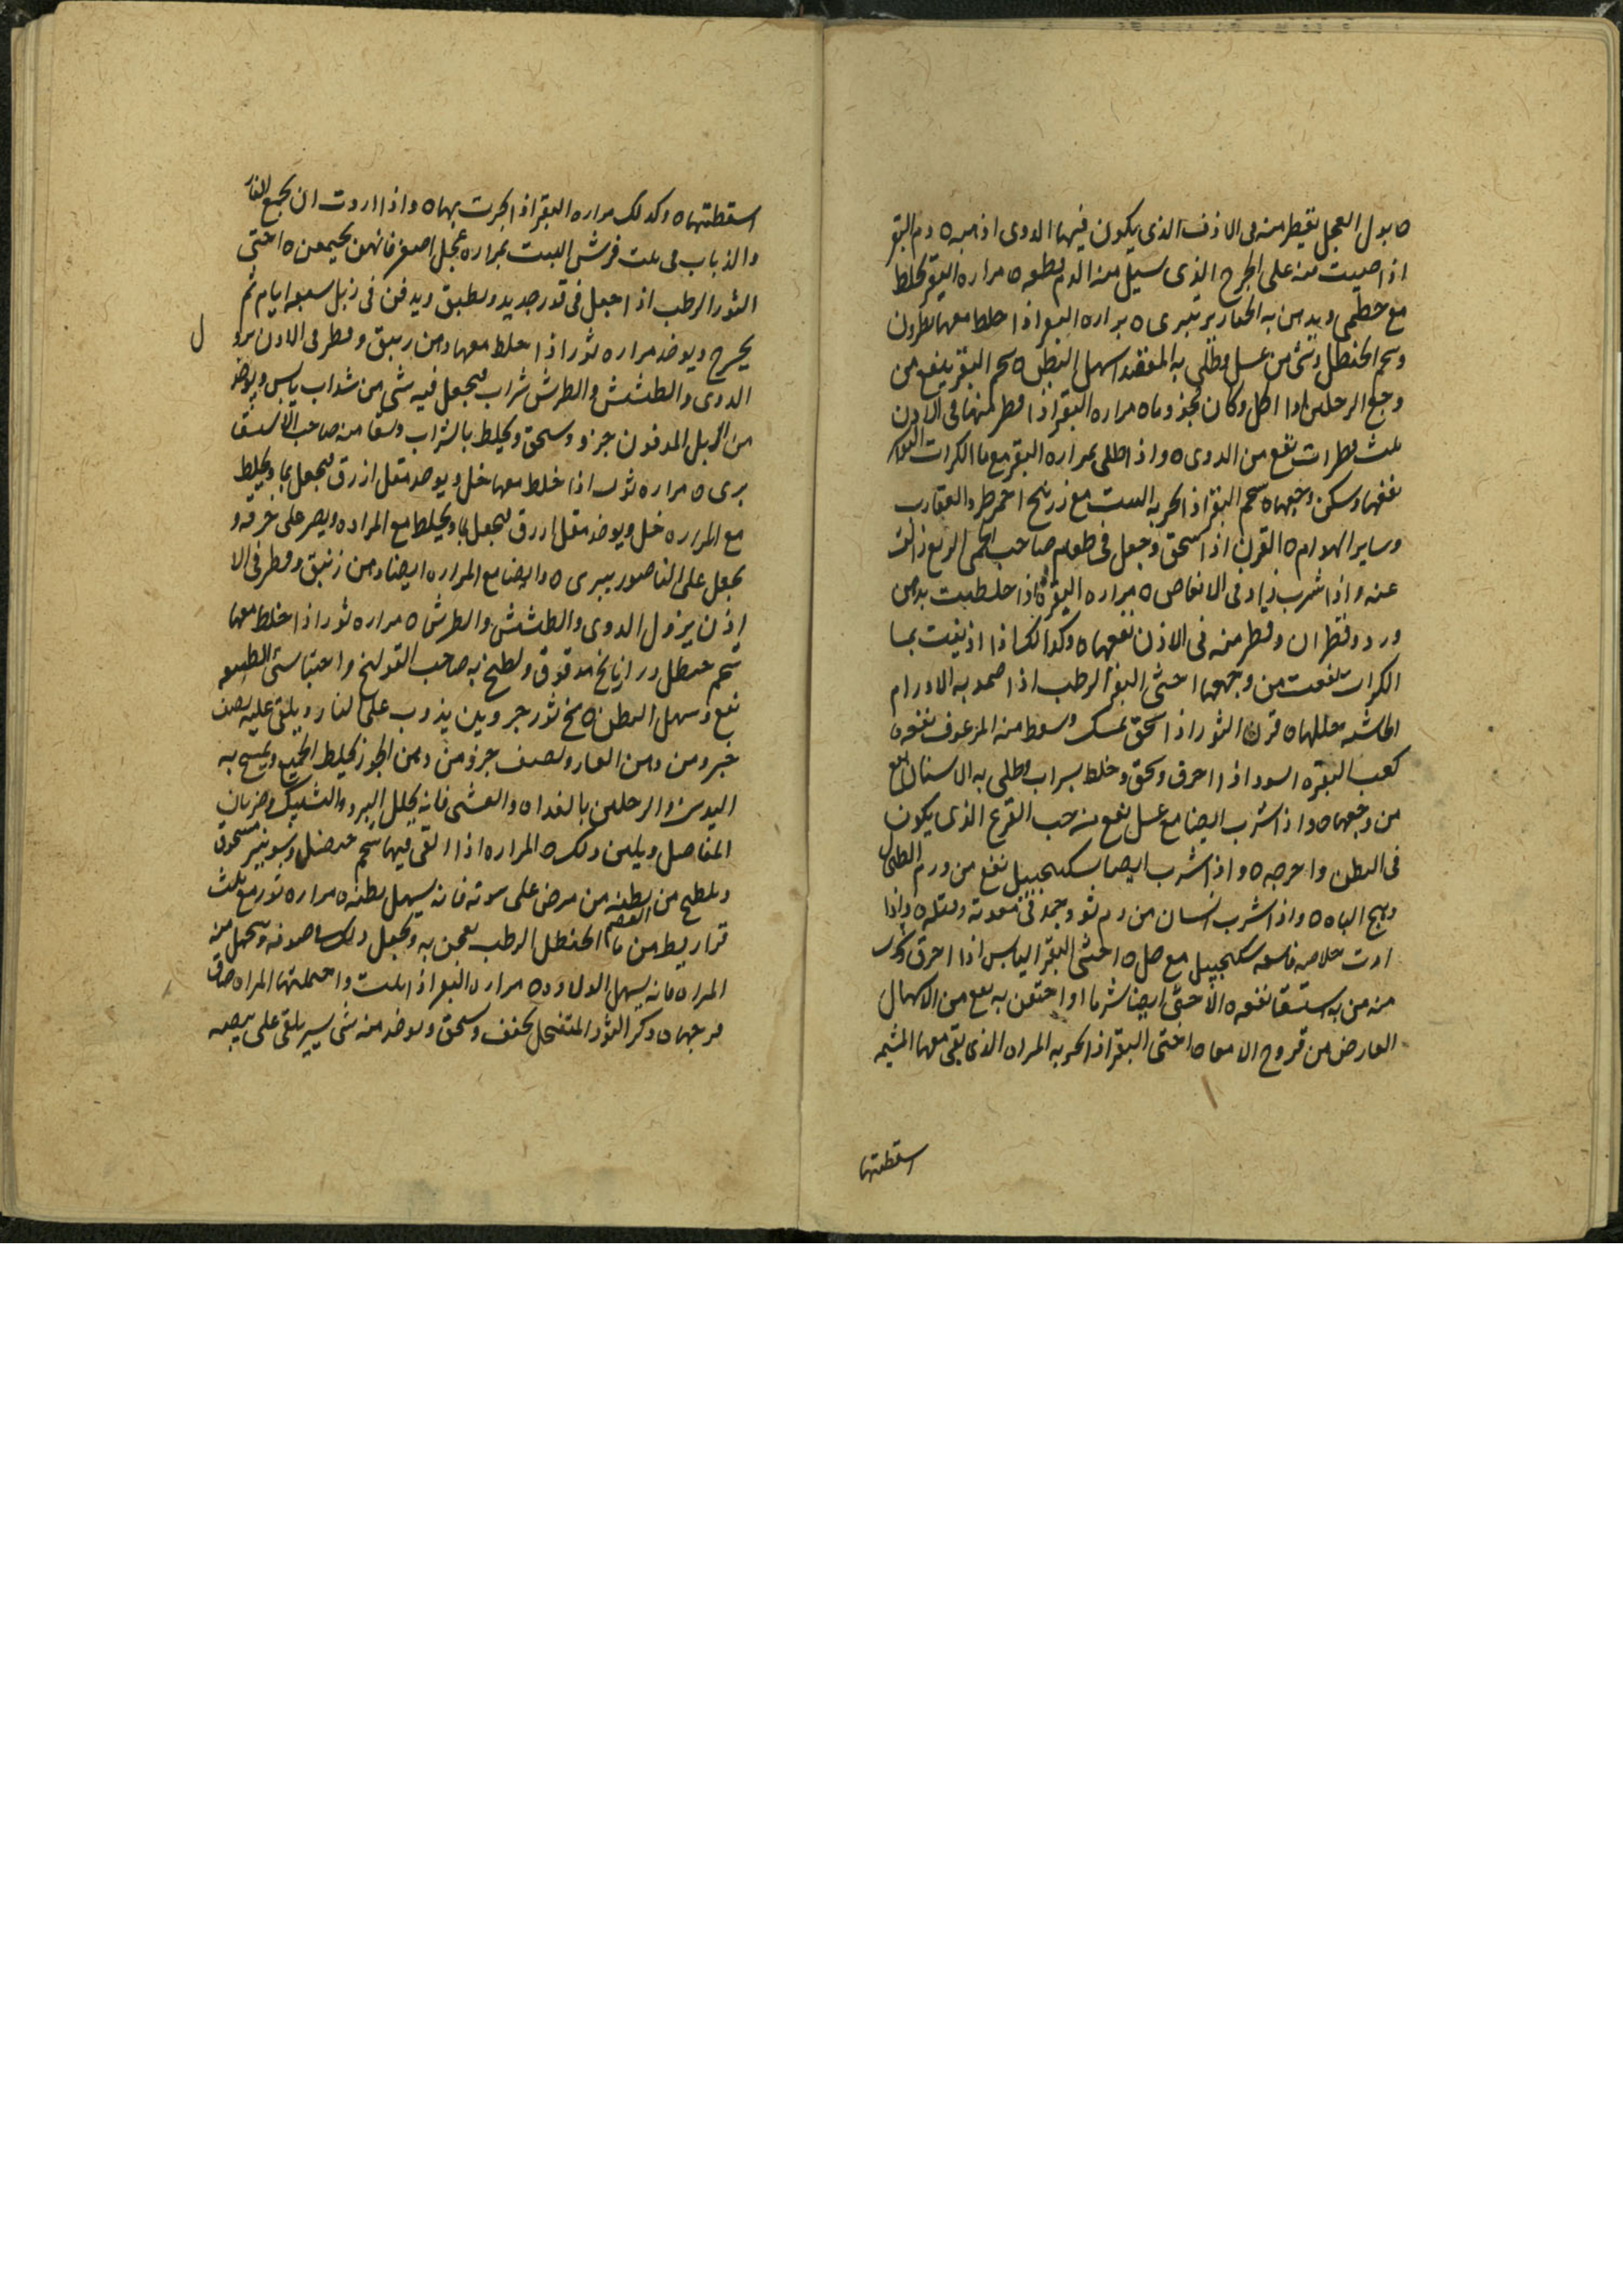 ه بول العجل يقطر منه فى الاذن الذى يكون فيها الدوى اذهبه ه دم البقر
اذا صببت منه على الجرح الذى سيل منه الدم قطعه ه مراره البقر تخلط
مع خطمى ويدهن به الخنازير تبرى ه مراره البقر اذا خلط معها نطرون
وشحم الحنظل وشى من عسل وطلى به المقعد اسهل البطن ه شحم البقر ينفع من
وجع الرجلين اذا اكل وكان بجذوماه مراره البقر اذا قطر منها فى الاذن
ثلث قطرات نفع من الدوى ه واذا طلى بمراره البقر مع ما الكراث
نفعها وسكن وجعها ه شحم البقر اذا بخر به البيت مع زرنيخ احمر طرد العقارب
وساير الهوام ه القرن اذا سحق وجعل فى طعام صاحب الحمى الربع زالت
عنه واذا شرب زاد فى الانعاص ه مراره البقره اذا خلطت بدهن
ورد وقطران وقطر منه فى الاذن نفعها ه وكذالك اذا اذيفت بما
الكراث نفعت من وجعها اخثى البقر الرطب اذا ضمد به الاورام
الجاشيه حللها ه قرن الثور اذا سحق بمسك وسعط منه المرعوف نفعه ه
كعب البقره السود اذا احرق وسحق وخلط بسراب وطلى به الاسنان نفع
من وجعها ه واذا شرب ايضا مع عسل نفع من حب القرع الذى يكون
فى البطن واخرجه ه واذا شرب ايضا سكنجبيل نفع من ورم الطحال
وهيج الباه ه واذا شرب انسان من دم ثور وجمد فى معدته وقتله ه واذا
اردت خلاصه فاسقه سكنجبيل مع خل ه اخثى البقر اليابس اذا احرق وشرب
منه من به استسقا نفعه ه الاخثى ايضا شربا او احتقن به نفع من الاسهال
العارض من قروح الامعا ه اخثى البقر اذا بخر به المراه الذى بقى معها المشيمه
اسقطتها
اسقطتها ه وكذلك مراره البقر اذا بخرت بها ه واذا اردت ان تجمع الفار
والذباب فى بيت فرش البيت بمراره عجل اصفر فانهن يجتمعن ه اخثى
الثور الرطب اذا جعل فى قدر جديد وطبق ويدفن فى زبل سبعه ايام ثم
يخرج ويوخذ مراره ثور اذا خلط معها دهن زيبق وقطر فى الاذن
ل
الدوى والطشش والطرش شراب يجعل فيه شى من شذاب يابس ويوخذ
من الزبل المدفون جزو وسحق ويخلط بالشراب وسقا منه صاحب الاستسقا
برى ه مراره ثور اذا خلط معها خل ويوخذ مقل ازرق فيجعل بما ويخلط
مع المراره خل ويوخذ مقل ازرق فيجعل بما ويخلط مع المراره ويصر على خرقه و
يجعل على الناصور يبرى ه وايضا مع المراره ايضا دهن زنبق وقطر فى الا
اذن يزول الدوى والطشش والطرش ه مراره ثور اذا خلط معها
شحم حنظل ورازيانج مدقوق ولطخ به صاحب القولنج واحتباس الطبيعه
نفع وسهل البطن ه مخ ثور جزوين يذوب على النار ويلقى عليه نصف
جزو من دهن الغار ونصف جزو من دهن الجوز يخلط الجميع ويمسح به
اليدين والرجلين بالغداه والعشى فانه يحلل البرد والتشبك وضربان
المفاصل ويلين ذلك ه المراره اذا القى فيها شحم حنضل وشونيز مسحوق
ويلطخ من بطنه من مرض على سرته فانه يسهل بطنه ه مراره ثور مع ثلث
قراريط من ما الحنظل الرطب يعجن به ويجعل ذلك صوفه وتحمل منه
المراه فانه يسهل الولاده ه مراره البقر اذا بلت واحتملتها المراه ضاق
فرجها ه ذكر الثور المتفحل يجفف وسحق ويوخذ منه شى يسير يلقى على بيضه